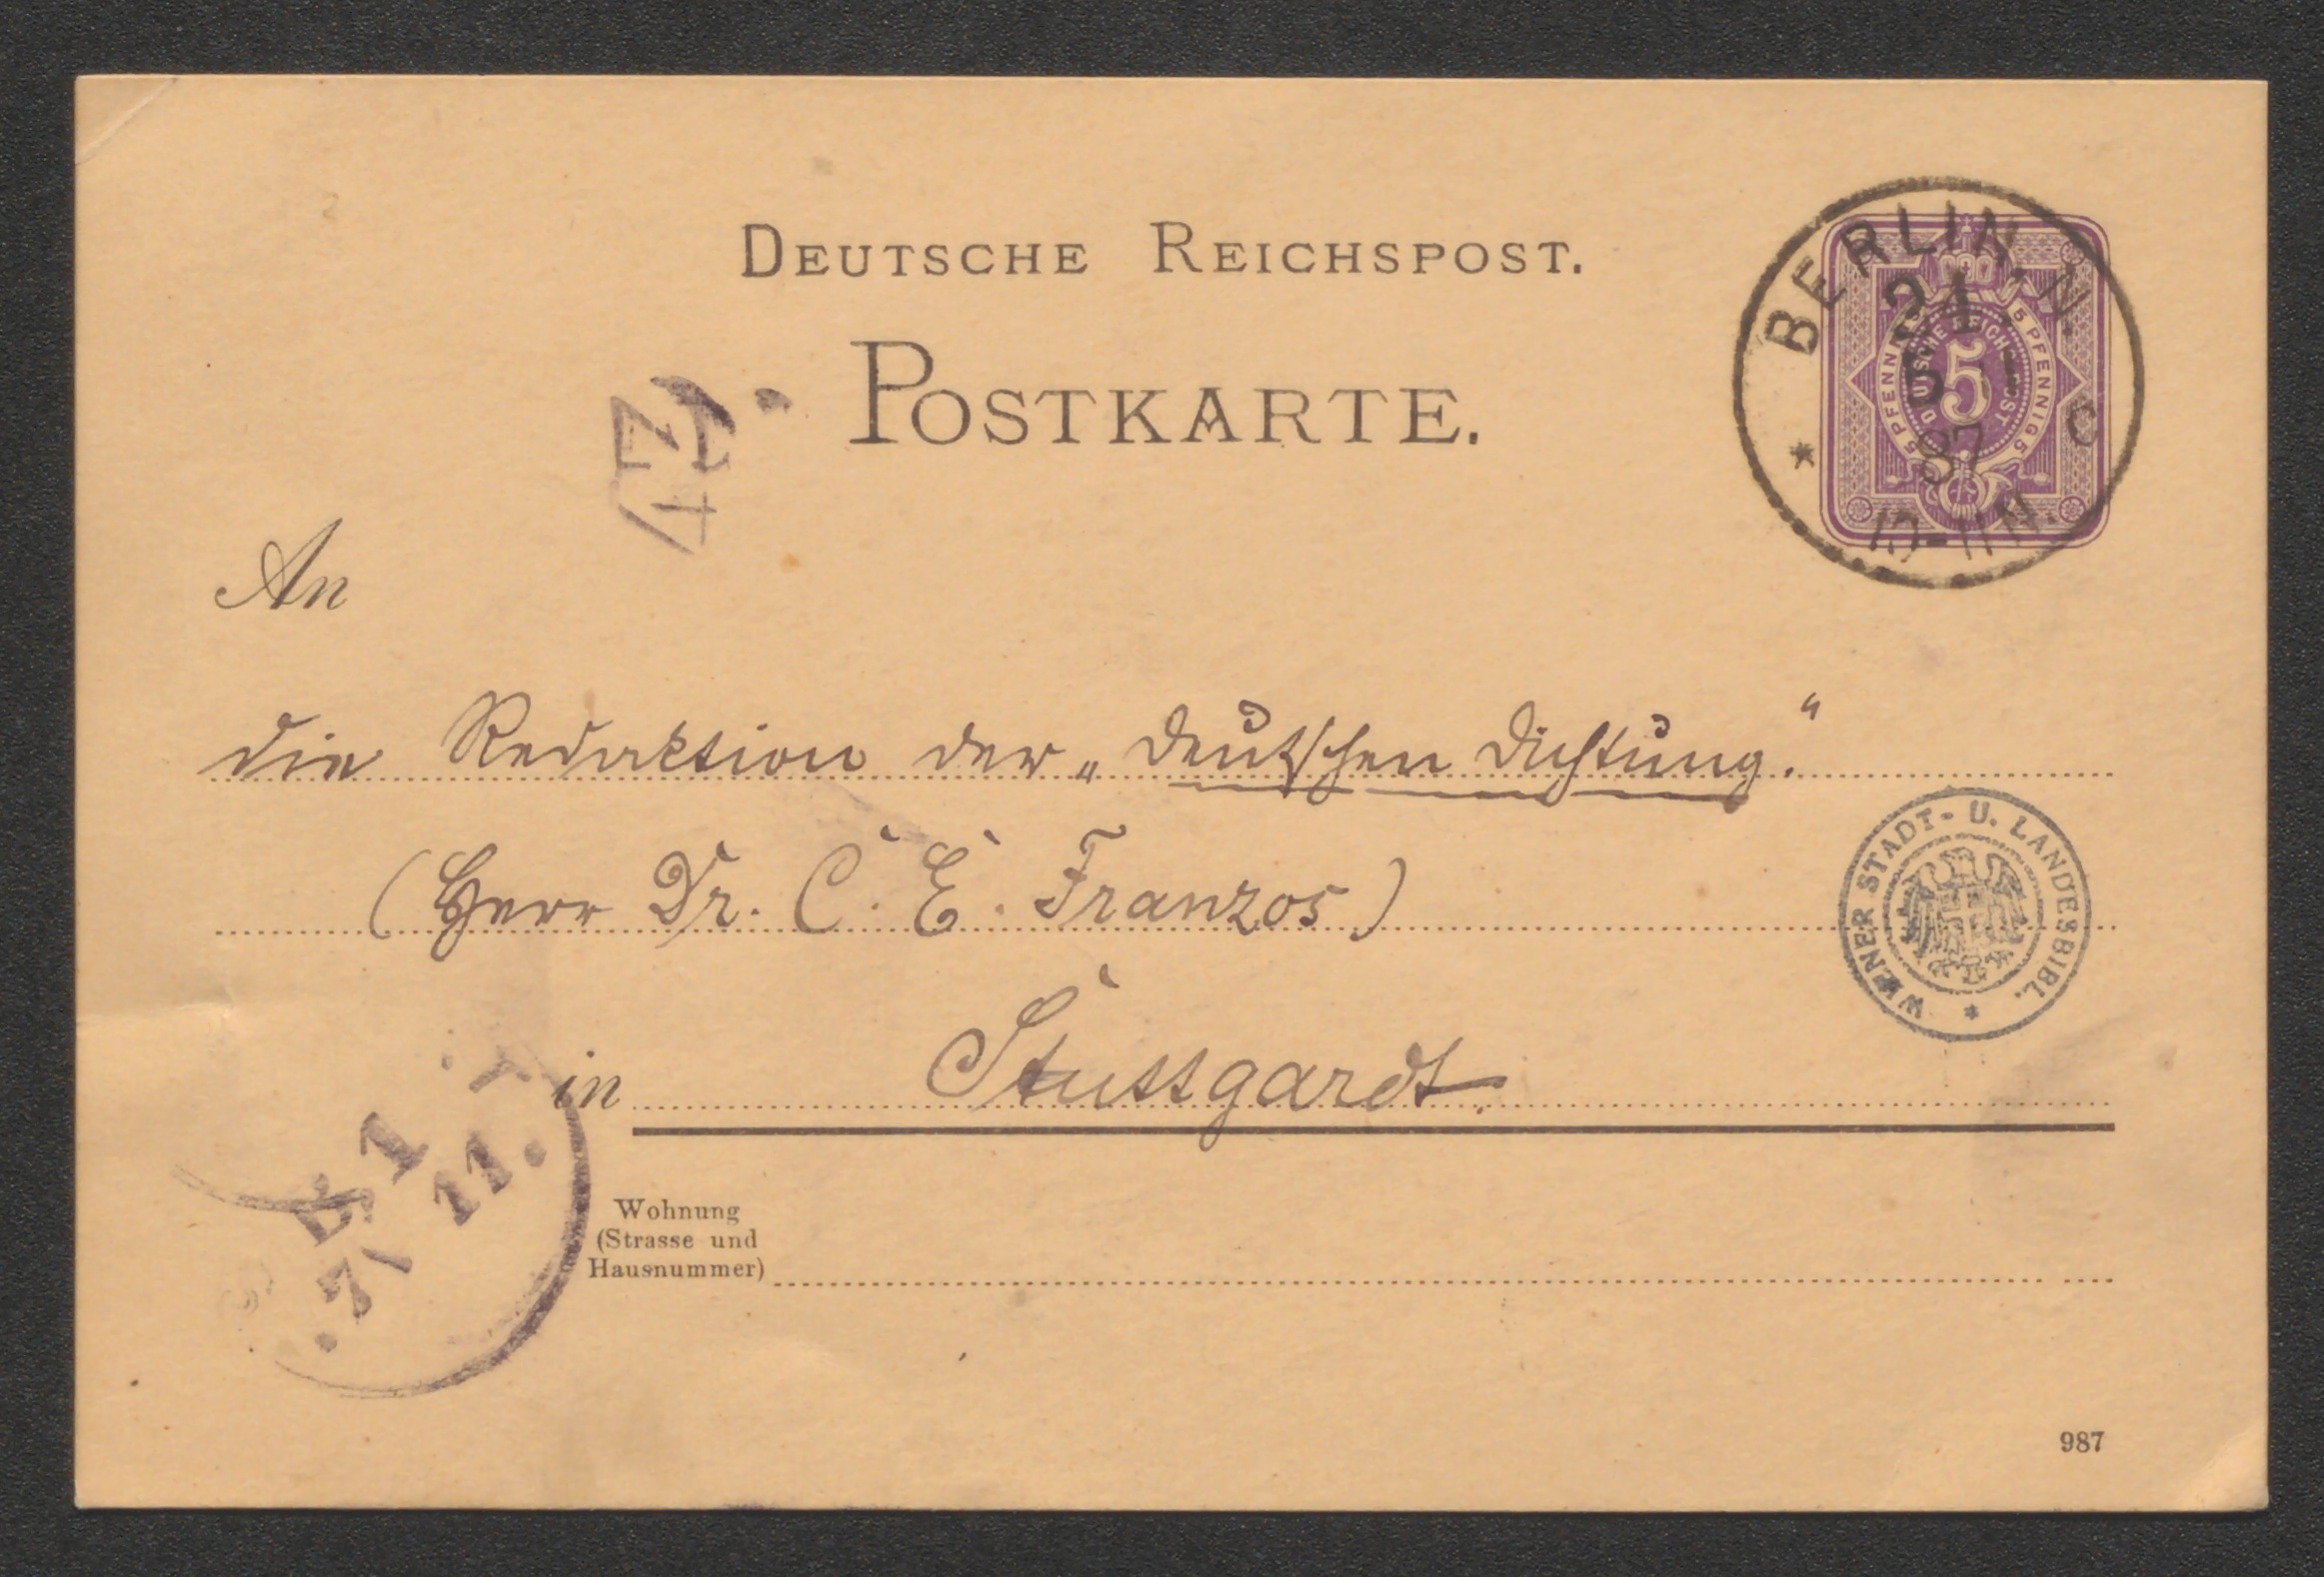 DEUTSCHE REICHSPOST.
POSTKARTE.
BERLIN, N.
21
5 11
87
10-11 N.
C
5 PFENNIG 5 PFENNIG 5
DEUTSCHE REICHSPOST
5
An
die Redaktion der „Deutschen Dichtung."
(Herr Dr. C. E. Franzos)
WIENER STADT- U. LANDESBIBL.
in Stuttgardt.
7 11.
Wohnung
(Strasse und
Hausnummer)
987